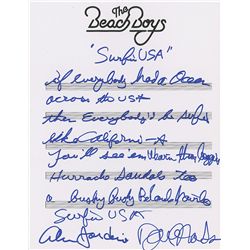 The
Beach Boys
"Surfin USA"
if everybody had a Ocean
across the USA
then Everybody'd be surfin
like Californi-A
You'll see'em Wearin their Baggies
Hurrachi Sandals too
a bushy Bushy Blonde
Surfin USA
Alan Jardine